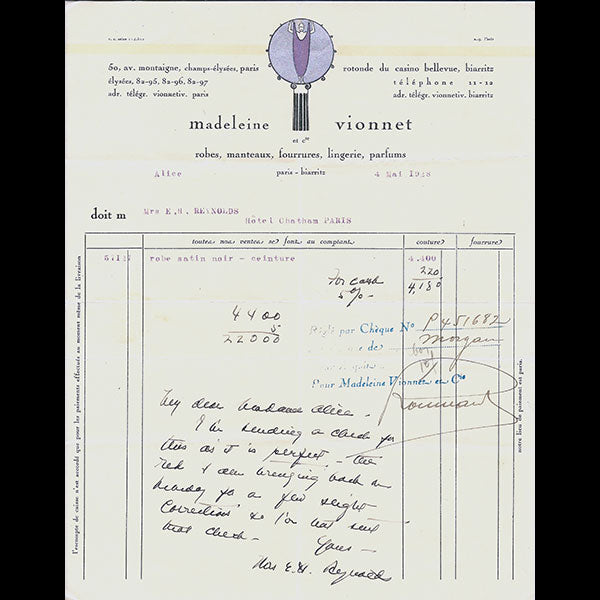 50, av. montaigne, champs-élysées, paris
élysées, 82-95, 82-96, 82-97
adr. télégr. vionnetiv. paris
rotonde du casino bellevue, biarritz
téléphone 11-10
adr. télégr. vionnetiv. biarritz
madeleine vionnet
et cie
robes, manteaux, fourrures, lingerie, parfums
paris - biarritz
Alice 4 Mai 1928
doit m Mrs E.H. REYNOLDS
Hôtel Chatham PARIS
toutes nos ventes se font au comptant couture fourrure
robe satin noir - ceinture 4.400
For cash 220
5% - 4,180
4400
5
22000
Réglé par Chèque No P451682
de Morgan
Pour Madeleine Vionnet et Cie
My dear Madame Alice -
I am sending a check for
this as it is perfect - the
red I am bringing back on
Monday for a few slight
corrections so I'm not sent
that check -
Yours -
Mrs E.H. Reynolds
l'escompte de caisse n'est accordé que pour les paiements effectués au moment même de la livraison
notre lieu de paiement est paris.